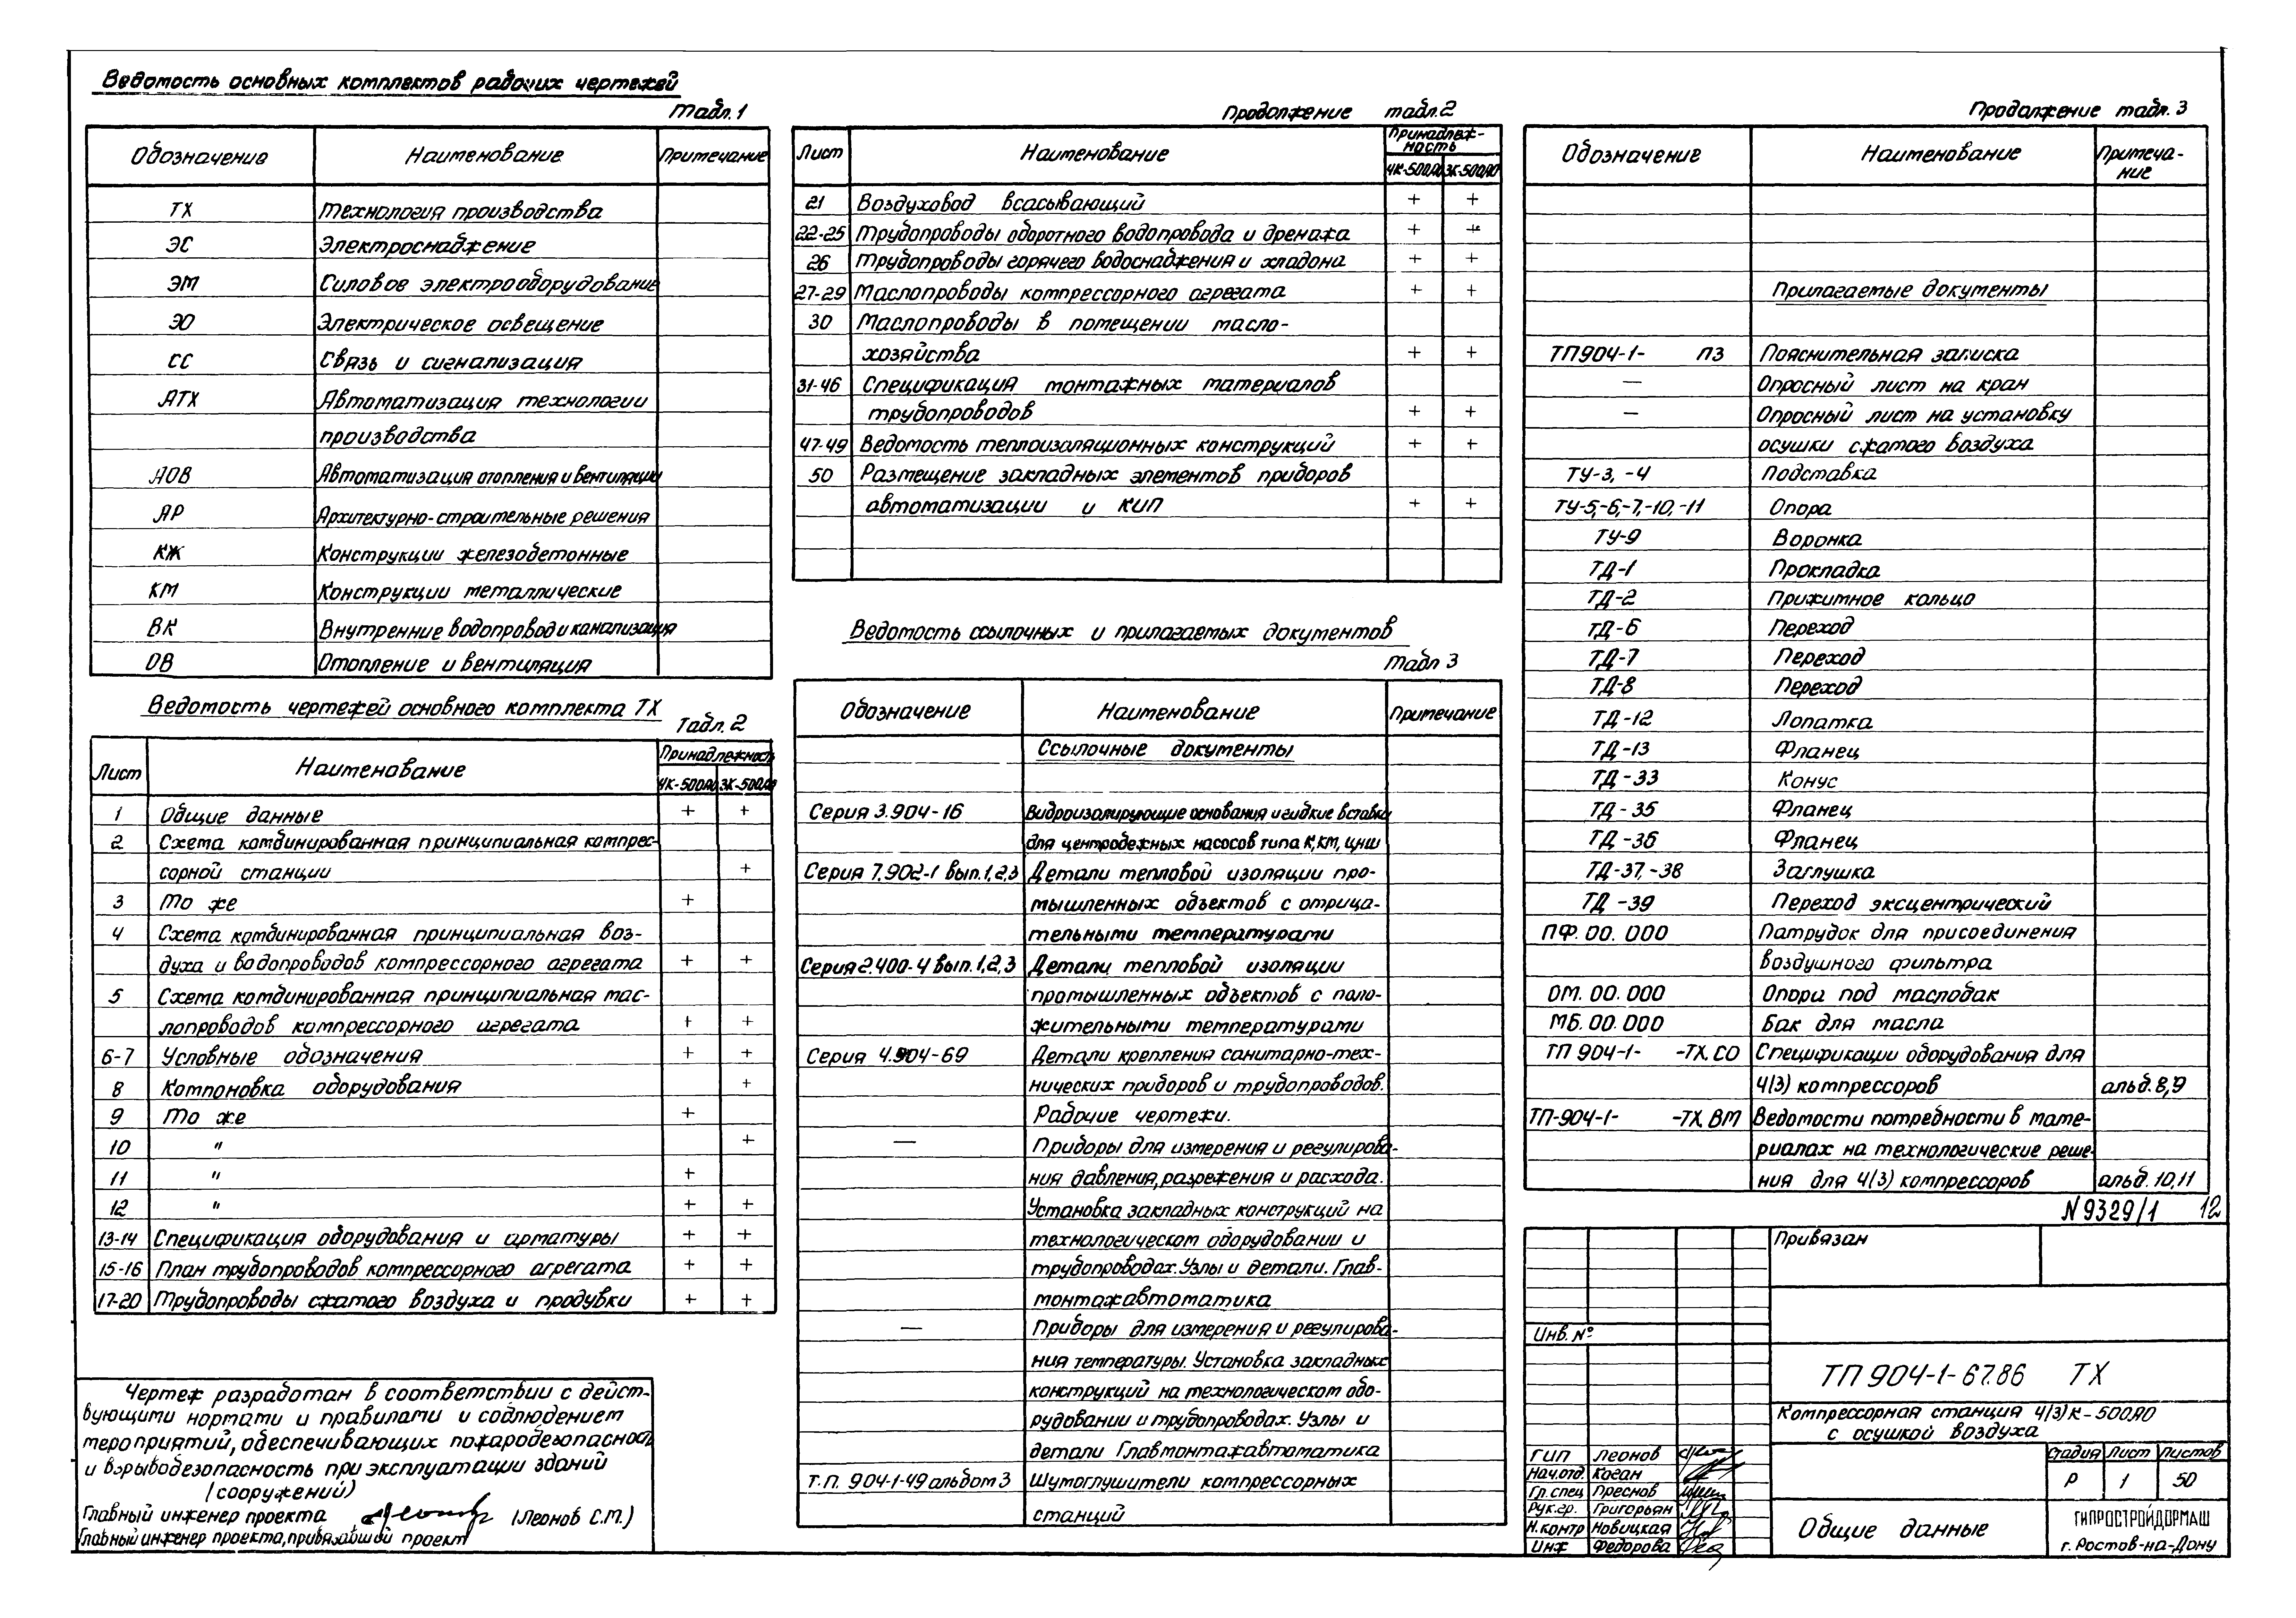 Ведомость основных комплектов рабочих чертежей
Табл. 1
Обозначение Наименование Примечание
ТХ Технология производства
ЭС Электроснабжение
ЭМ Силовое электрооборудование
ЭО Электрическое освещение
СС Связь и сигнализация
АТХ Автоматизация технологии
производства
АОВ Автоматизация отопления и вентиляции
АР Архитектурно-строительные решения
КЖ Конструкции железобетонные
КМ Конструкции металлические
ВК Внутренние водопровод и канализация
ОВ Отопление и вентиляция
Ведомость чертежей основного комплекта ТХ
Табл. 2
Лист Наименование Принадлежность
4К-500АО 3К-500АО
1 Общие данные + +
2 Схема комбинированная принципиальная компрес-
сорной станции +
3 То же +
4 Схема комбинированная принципиальная воз-
духа и водопроводов компрессорного агрегата + +
5 Схема комбинированная принципиальная мас-
лопроводов компрессорного агрегата + +
6-7 Условные обозначения + +
8 Компоновка оборудования +
9 То же +
10 " +
11 " +
12 " + +
13-14 Спецификация оборудования и арматуры + +
15-16 План трубопроводов компрессорного агрегата + +
17-20 Трубопроводы сжатого воздуха и продувки + +
Чертеж разработан в соответствии с дейст-
вующими нормами и правилами и соблюдением
мероприятий, обеспечивающих пожаробезопасность
и взрывобезопасность при эксплуатации зданий
(сооружений)
Главный инженер проекта (Леонов С.М.)
Главный инженер проекта, привязавший проект
Продолжение табл. 2
Лист Наименование Принадлеж-
ность
4К-500АО 3К-500АО
21 Воздуховод всасывающий + +
22-25 Трубопроводы оборотного водопровода и дренажа + +
26 Трубопроводы горячего водоснабжения и хладона + +
27-29 Маслопроводы компрессорного агрегата + +
30 Маслопроводы в помещении масло-
хозяйства + +
31-46 Спецификация монтажных материалов
трубопроводов + +
47-49 Ведомость теплоизоляционных конструкций + +
50 Размещение закладных элементов приборов
автоматизации и КИП + +
Ведомость ссылочных и прилагаемых документов
Табл 3
Обозначение Наименование Примечание
Ссылочные документы
Серия 3.904-16 Виброизолирующие основания и гибкие вставки
для центробежных насосов типа К, КМ, ЦНШ
Серия 7.902-1 вып. 1,2,3 Детали тепловой изоляции про-
мышленных объектов с отрица-
тельными температурами
Серия 2.400-4 вып. 1,2,3 Детали тепловой изоляции
промышленных объектов с поло-
жительными температурами
Серия 4.904-69 Детали крепления санитарно-тех-
нических приборов и трубопроводов.
Рабочие чертежи.
— Приборы для измерения и регулирова-
ния давления, разрежения и расхода.
Установка закладных конструкций на
технологическом оборудовании и
трубопроводах. Узлы и детали. Глав-
монтажавтоматика
— Приборы для измерения и регулирова-
ния температуры. Установка закладных
конструкций на технологическом обо-
рудовании и трубопроводах. Узлы и
детали Главмонтажавтоматика
Т.п. 904-1-49 альбом 3 Шумоглушители компрессорных
станций
Продолжение табл. 3
Обозначение Наименование Примеча-
ние
Прилагаемые документы
ТП904-1- ПЗ Пояснительная записка
— Опросный лист на кран
— Опросный лист на установку
осушки сжатого воздуха
ТУ-3, -4 Подставка
ТУ-5,-6,-7,-10,-11 Опора
ТУ-9 Воронка
ТД-1 Прокладка
ТД-2 Прижимное кольцо
ТД-6 Переход
ТД-7 Переход
ТД-8 Переход
ТД-12 Лопатка
ТД-13 Фланец
ТД-33 Конус
ТД-35 Фланец
ТД-36 Фланец
ТД-37,-38 Заглушка
ТД-39 Переход эксцентрический
ПФ. 00. 000 Патрубок для присоединения
воздушного фильтра
ОМ. 00. 000 Опора под маслобак
МБ. 00. 000 Бак для масла
ТП 904-1- -ТХ.СО Спецификации оборудования для
4(3) компрессоров альб. 8,9
ТП-904-1- -ТХ.ВМ Ведомости потребности в мате-
риалах на технологические реше-
ния для 4(3) компрессоров альб. 10,11
N9329/1 12
Привязан
Инв. №
ТП 904-1-67.86 ТХ
Компрессорная станция 4(3)К-500АО
с осушкой воздуха
ГИП Леонов
Нач.отд. Коган
Гл.спец Преснов
Рук.гр. Григорьян
Н.контр Новицкая
Инж Федорова
Стадия Лист Листов
Р 1 50
Общие данные
ГИПРОСТРОЙДОРМАШ
г. Ростов-на-Дону